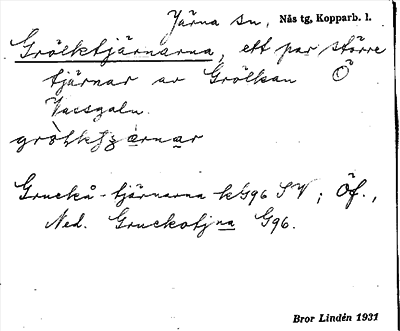 Järna sn, Nås tg, Kopparb. l.
Grölktjärnarna, ett par större
tjärnar av Grölkan Ö
Vassgaln.
Gruckå-tjärnarna kbl 96 SV; Öf.,
Ned. Gruckotjna G96.
Bror Lindén 1931